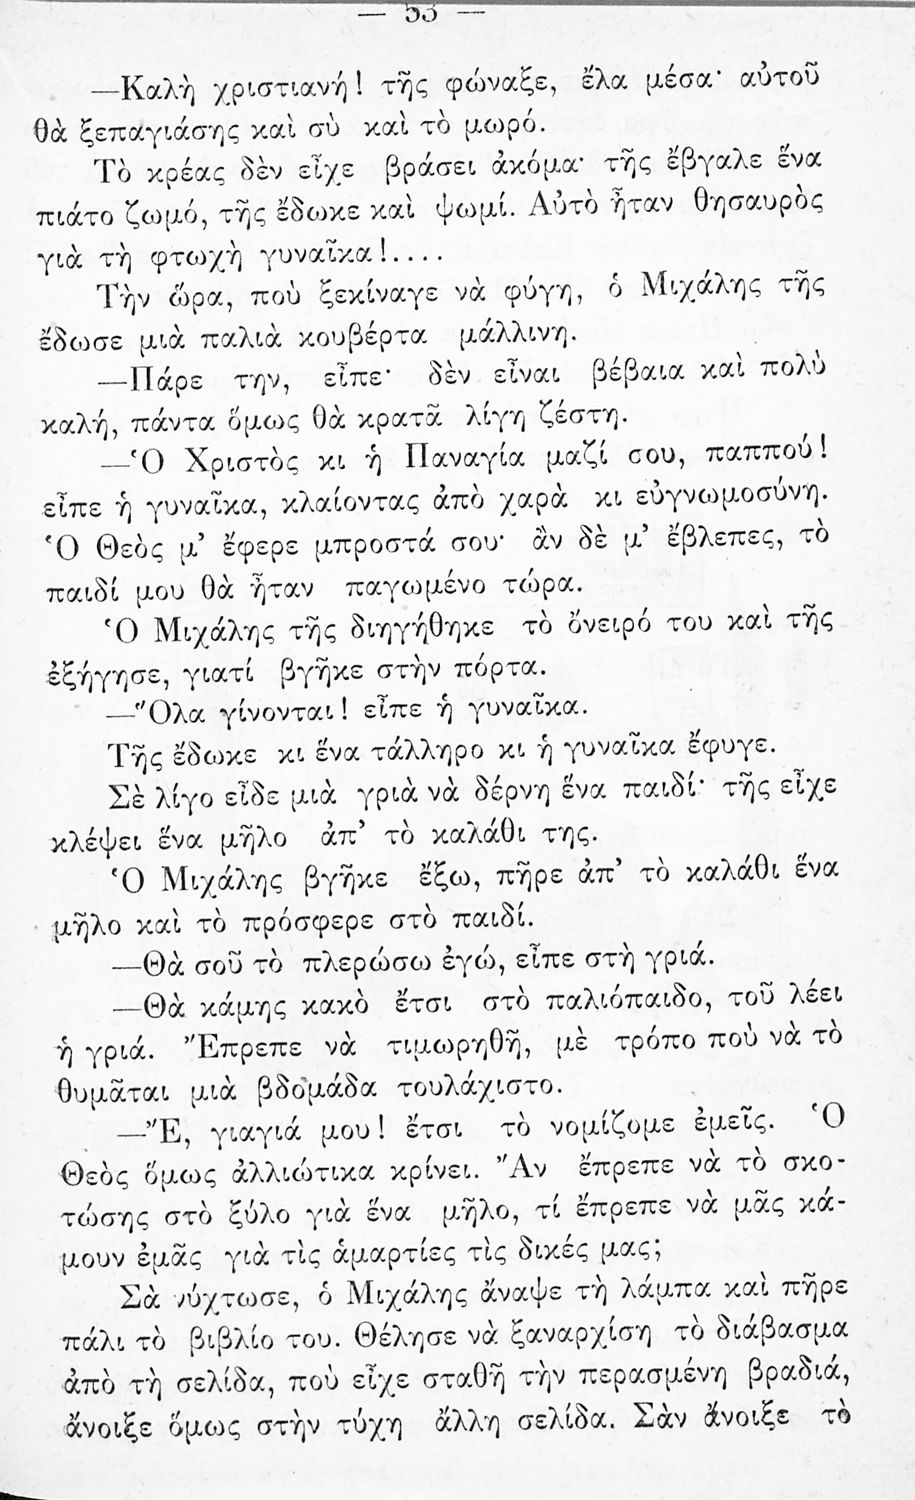 — 53 —
—Καλὴ χριστιανή! τῆς φώναξε, ἔλα μέσα· αὐτοῦ
θὰ ξεπαγιάσῃς καὶ σὺ καὶ τὸ μωρό.
Τὸ κρέας δὲν εἶχε βράσει ἀκόμα· τῆς ἔβγαλε ἕνα
πιάτο ζωμό, τῆς ἔδωκε καὶ ψωμί. Αὐτὸ ἦταν θησαυρὸς
γιὰ τὴ φτωχὴ γυναῖκα!....
Τὴν ὥρα, ποὺ ξεκίναγε νὰ φύγῃ, ὁ Μιχάλης τῆς
ἔδωσε μιὰ παλιὰ κουβέρτα μάλλινη.
—Πάρε την, εἶπε· δὲν εἶναι βέβαια καὶ πολὺ
καλή, πάντα ὅμως θὰ κρατᾶ λίγη ζέστη.
—Ὁ Χριστὸς κι ἡ Παναγία μαζί σου, παππού!
εἶπε ἡ γυναῖκα, κλαίοντας ἀπὸ χαρὰ κι εὐγνωμοσύνη.
Ὁ Θεὸς μ’ ἔφερε μπροστά σου· ἂν δὲ μ’ ἔβλεπες, τὸ
παιδί μου θὰ ἦταν παγωμένο τώρα.
Ὁ Μιχάλης τῆς διηγήθηκε τὸ ὄνειρό του καὶ τῆς
ἐξήγησε, γιατί βγῆκε στὴν πόρτα.
—Ὅλα γίνονται! εἶπε ἡ γυναῖκα.
Τῆς ἔδωκε κι ἕνα τάλληρο κι ἡ γυναῖκα ἔφυγε.
Σὲ λίγο εἶδε μιὰ γριὰ νὰ δέρνῃ ἕνα παιδί· τῆς εἶχε
κλέψει ἕνα μῆλο ἀπ’ τὸ καλάθι της.
Ὁ Μιχάλης βγῆκε ἔξω, πῆρε ἀπ’ τὸ καλάθι ἕνα
μῆλο καὶ τὸ πρόσφερε στὸ παιδί.
—Θὰ σοῦ τὸ πλερώσω ἐγώ, εἶπε στὴ γριά.
—Θὰ κάμῃς κακὸ ἔτσι στὸ παλιόπαιδο, τοῦ λέει
ἡ γριά. Ἔπρεπε νὰ τιμωρηθῇ, μὲ τρόπο ποὺ νὰ τὸ
θυμᾶται μιὰ βδομάδα τουλάχιστο.
—Ἔ, γιαγιά μου! ἔτσι τὸ νομίζομε ἐμεῖς. Ὁ
Θεὸς ὅμως ἀλλιώτικα κρίνει. Ἂν ἔπρεπε νὰ τὸ σκο-
τώσῃς στὸ ξύλο γιὰ ἕνα μῆλο, τί ἔπρεπε νὰ μᾶς κά-
μουν ἐμᾶς γιὰ τὶς ἁμαρτίες τὶς δικές μας;
Σὰ νύχτωσε, ὁ Μιχάλης ἄναψε τὴ λάμπα καὶ πῆρε
πάλι τὸ βιβλίο του. Θέλησε νὰ ξαναρχίσῃ τὸ διάβασμα
ἀπὸ τὴ σελίδα, ποὺ εἶχε σταθῆ τὴν περασμένη βραδιά,
ἄνοιξε ὅμως στὴν τύχη ἄλλη σελίδα. Σὰν ἄνοιξε τὸ